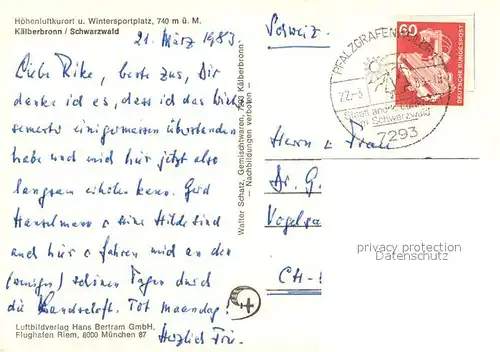 Höhenluftkurort u. Wintersportplatz, 740 m ü. M.
Kälberbronn / Schwarzwald
21. März 1983.
Liebe Rike, beste Zus, Dir
danke ich es, dass ich das
einigermassen überstanden
habe und mich hier jetzt also
langsam erholen kann. Gerd
Hanselmann & seine Hilde sind
auch hier & fahren mich an den
(wenigen) schönen Tagen durch
die Landschaft. Tot maandag!
Herzlich
Luftbildverlag Hans Bertram GmbH,
Flughafen Riem, 8000 München 87
Walter Schatz, Gemischtwaren, Kälberbronn
– Nachbildungen verboten –
Schweiz
PFALZGRAFENWEILER
22.-3.
im Schwarzwald
7293
60
DEUTSCHE BUNDESPOST
Herrn & Frau
Dr. G
CH-
privacy protection
akpool.de